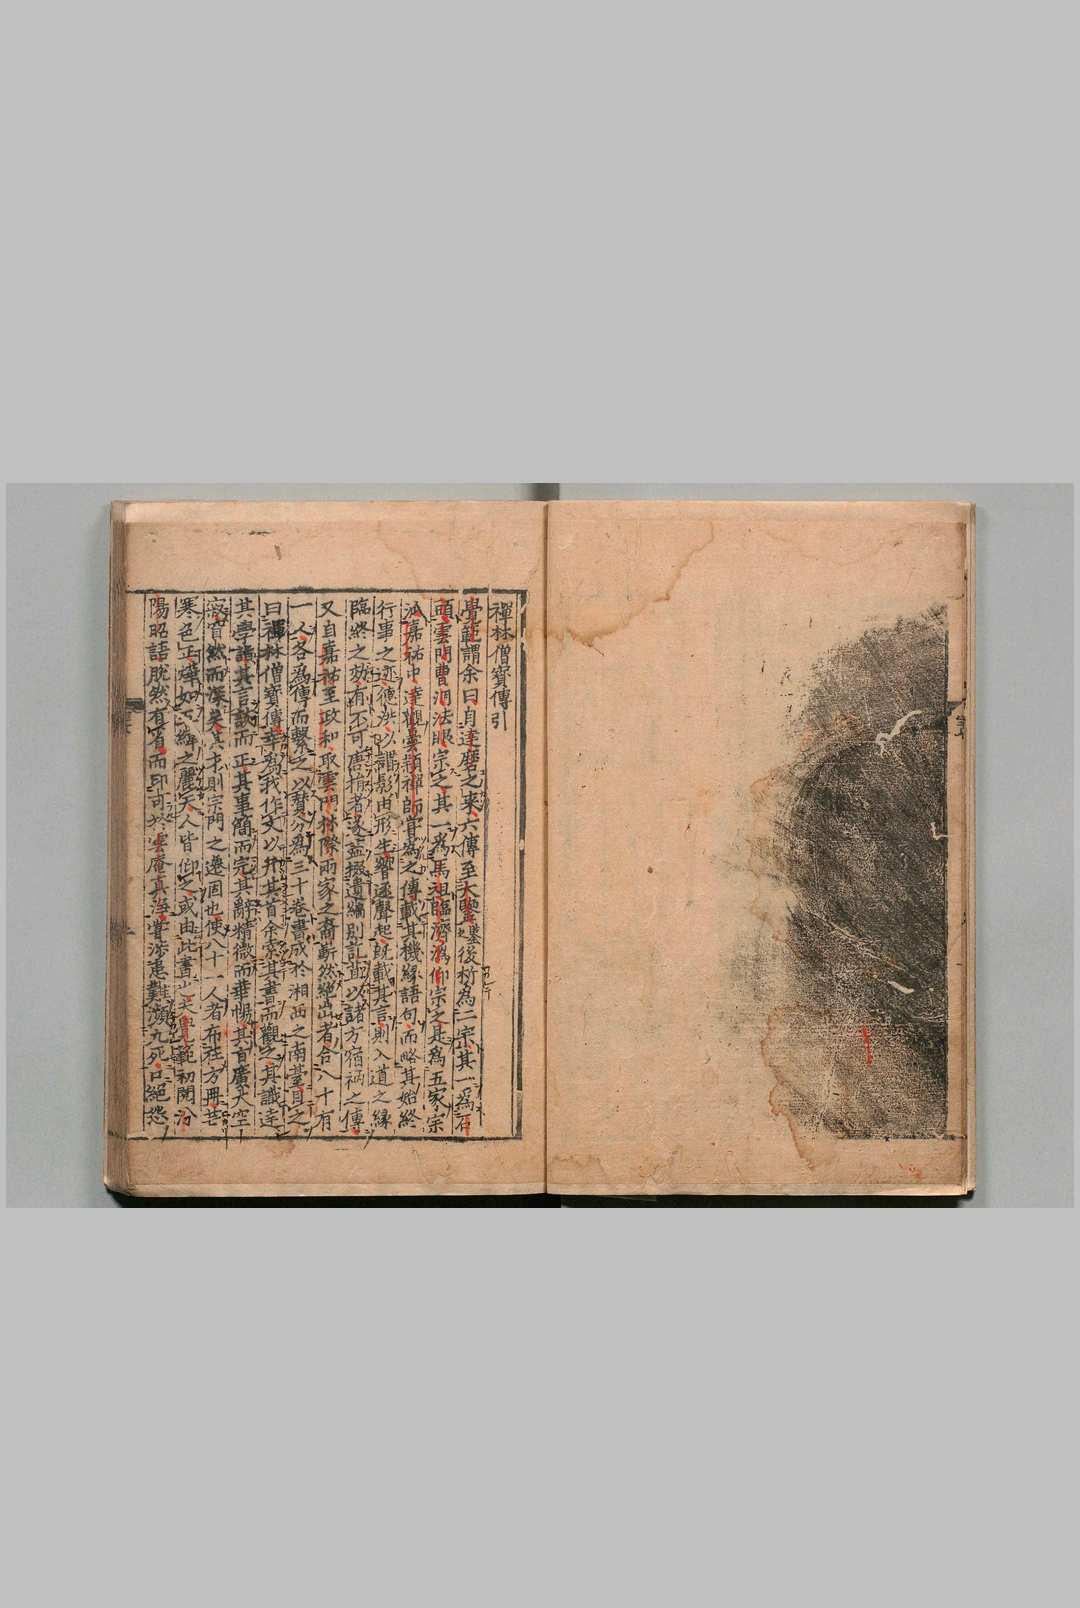 禪林僧寶傳引
覺範謂余曰自達磨之来六傳至大鑒鑒之後析為二宗其一爲石
頭雲門曹洞法眼宗之其一爲馬祖臨濟溈仰宗之是爲五家宗
派嘉祐中達觀曇頴禪師嘗為之傳載其機緣語句而略其始終
行事之迹德洪以謂影由形生響逐聲起既載其言則入道之緣
臨終之效有不可唐捐者遂盡掇遺編別記苴以諸方宿衲之傳
又自嘉祐至政和取雲門林際兩家之裔嶄然絕出者合八十有
一人各為傳而繫之以賛分為三十卷書成於湘西之南臺目之
曰禪林僧寶傳幸為我作文以弁其首余索其書而觀之其識達
其學詣其言談而正其事簡而完其辭精微而華暢其旨廣大空
寂窅然而深矣其才則宗門之遷固也使八十一人者布在方冊芒
寒色正燁如五緯之麗天人皆仰之或由此書也夫覺範初閱汾
陽昭語脫然有省而印可於雲庵真淨嘗涉患難瀕九死口絕怨